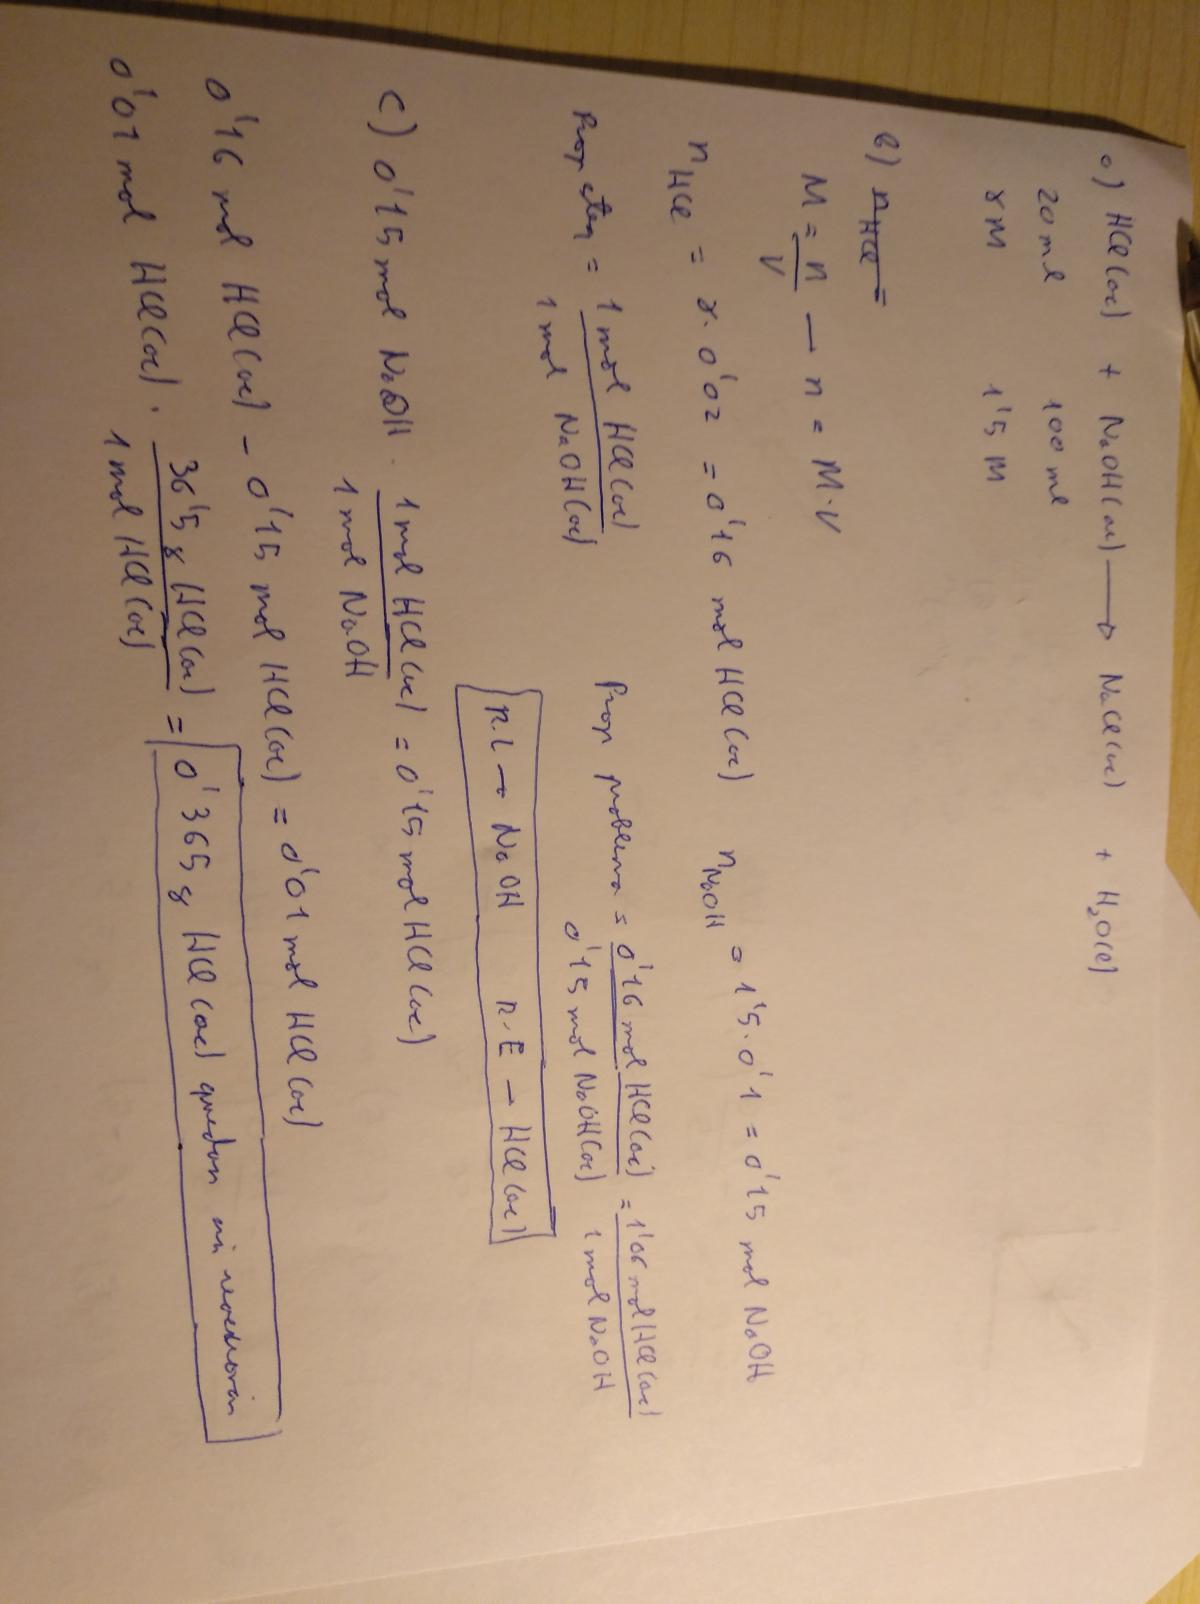 a) HCl(ac) + NaOH(ac) → NaCl(ac) + H₂O(l)
20 ml 100 ml
8 M 1'5 M
b) n HCl =
M = n/V → n = M·V
n HCl = 8·0'02 = 0'16 mol HCl(ac) n NaOH = 1'5·0'1 = 0'15 mol NaOH
Prop = 1 mol HCl(ac)/1 mol NaOH(ac) Prop problema = 0'16 mol HCl(ac)/0'15 mol NaOH(ac) = 1'06 mol HCl(ac)/1 mol NaOH
R.L → NaOH R.E → HCl(ac)
c) 0'15 mol NaOH · 1 mol HCl(ac)/1 mol NaOH = 0'15 mol HCl(ac)
0'16 mol HCl(ac) - 0'15 mol HCl(ac) = 0'01 mol HCl(ac)
0'01 mol HCl(ac) · 36'5 g HCl(ac)/1 mol HCl(ac) = 0'365 g HCl(ac) quedan sin reaccionar